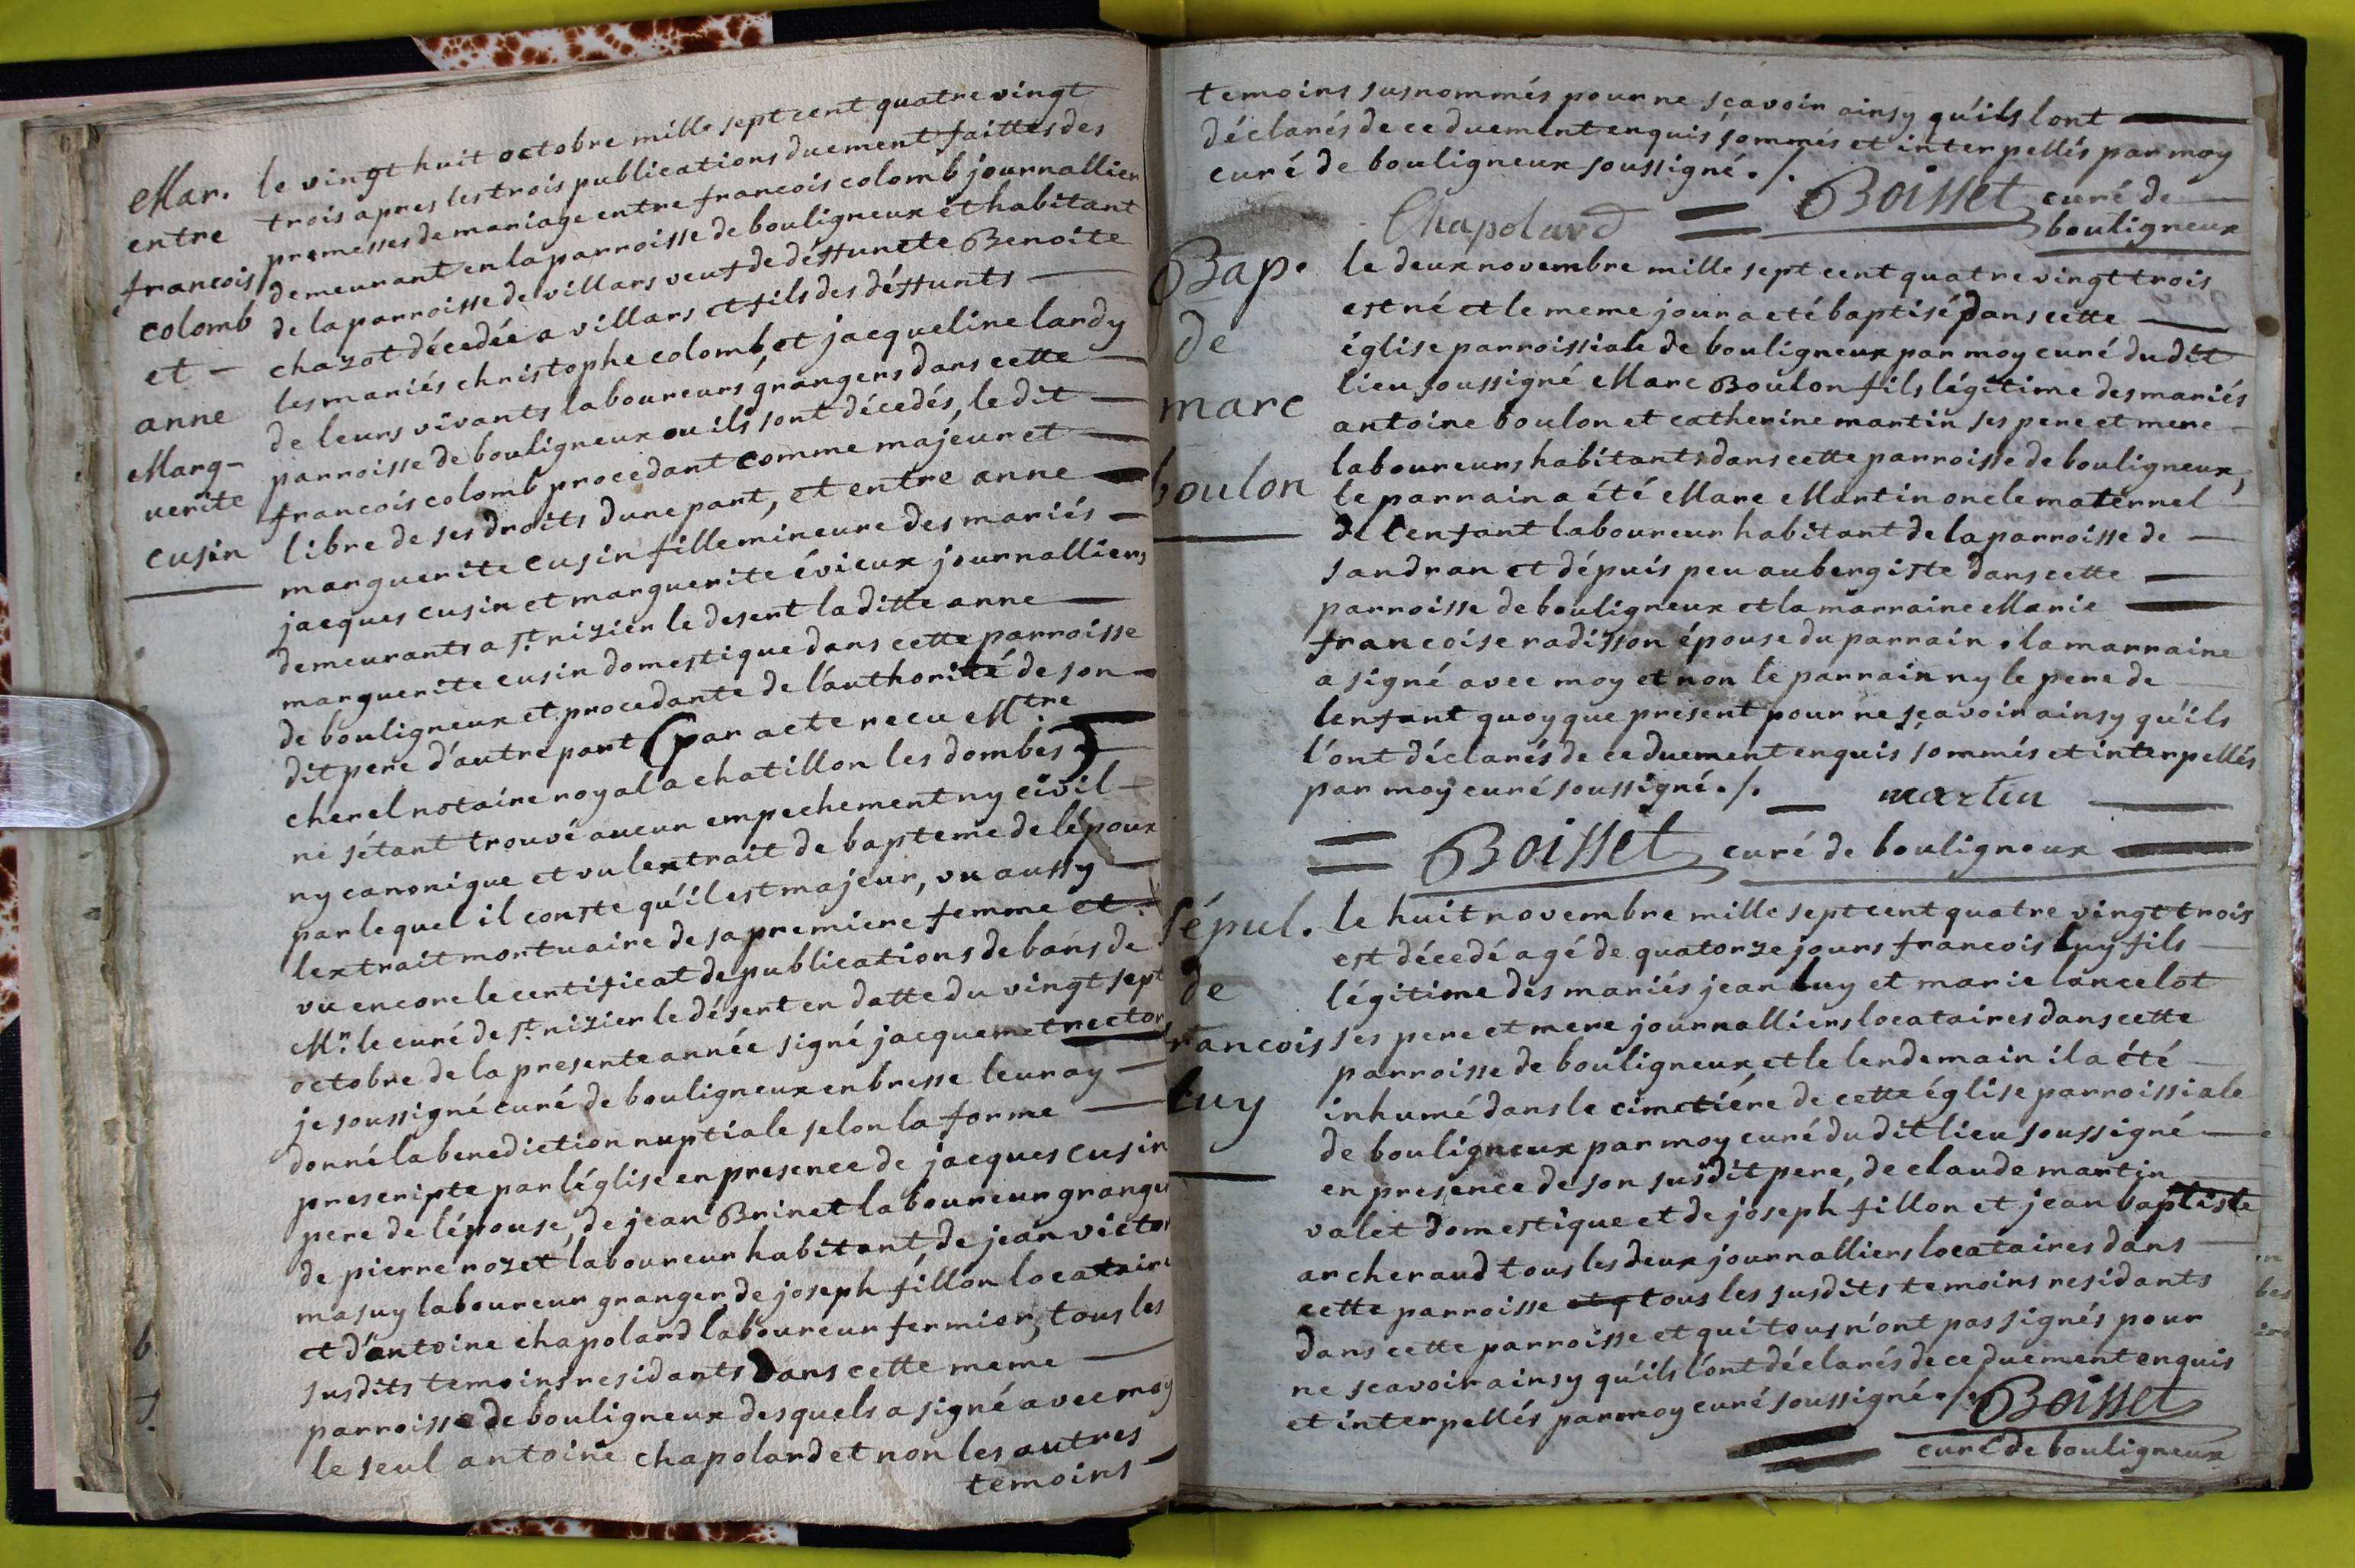 Mar.
entre
francois
colomb
et -
anne
Marg-
uerite
cusin
le vingt huit octobre mille sept cent quatre vingt
trois apres les trois publications duement faittes des
promesses de mariage entre francois colomb journallier
demeurant en la parroisse de bouligneux et habitant
de la parroisse de villars veuf de déffuncte Benoite
chazot décedée a villars et fils des déffunts
les mariés christophe colomb, et jacqueline lardy
de leurs vivants laboureurs grangers dans cette
parroisse de bouligneux ou ils sont décedés, le dit
francois colomb procedant comme majeur et
libre de ses droits dune part, et entre anne
marguerite cusin fille mineure des mariés
jacques cusin et marguerite évieux journalliers
demeurants a st. nizier le desert la ditte anne
marguerite cusin domestique dans cette parroisse
de bouligneux et procedante de l'authorité de son
dit pere d'autre part (par acte recu Mtre.
cherel notaire royal a chatillon les dombes)
ne s'étant trouvé aucun empechement ny civil
ny canonique et vu lextrait de bapteme de lépoux
par lequel il conste qu'il est majeur, vu aussy
lextrait mortuaire de sa premiere femme et
vu encore le certificat de publications de bans de
Mr. le curé de st. nizier le désert en datte du vingt sept
octobre de la presente année signé jacquemet rector
je soussigné curé de bouligneux en bresse leur ay
donné la benediction nuptiale selon la forme
prescripte par l'église en presence de jacques cusin
pere de lépouse, de jean Brinet laboureur granger
de pierre rozet laboureur habitant, de jean victor
masuy laboureur granger de joseph fillon locataire
et d'antoine chapolard laboureur fermier, tous les
susdits temoins residants dans cette meme
parroisse de bouligneux desquels a signé avec moy
le seul antoine chapolard et non les autres
temoins
temoins susnommés pour ne sçavoir ainsy qu'ils lont
déclarés de ce duement enquis, sommés et interpellés par moy
curé de bouligneux soussigné ./.
Chapolard = Boisset curé de
bouligneux
Bap.
de
marc
boulon
le deux novembre mille sept cent quatre vingt trois
est né et le meme jour a eté baptisé dans cette
église parroissiale de bouligneux par moy curé du dit
lieu soussigné Marc Boulon fils légitime des mariés
antoine boulon et catherine martin ses pere et mere
laboureurs habitants dans cette parroisse de bouligneux,
le parrain a été Marc Martin oncle maternel
de l'enfant laboureur habitant de la parroisse de
sandran et dépuis peu aubergiste dans cette
parroisse de bouligneux et la marraine Marie
francoise radisson épouse du parrain. la marraine
a signé avec moy et non le parrain ny le pere de
lenfant quoyque present pour ne sçavoir ainsy qu'ils
l'ont déclarés de ce duement enquis sommés et interpellés
par moy curé soussigné ./. martin
= Boisset curé de bouligneux
Sépul.
de
francois
luy
le huit novembre mille sept cent quatre vingt trois
est décedé agé de quatorze jours francois luy fils
légitime des mariés jean luy et marie lancelot
ses pere et mere journalliers locataires dans cette
parroisse de bouligneux et le lendemain il a été
inhumé dans le cimetiére de cette église parroissiale
de bouligneux par moy curé du dit lieu soussigné
en presence de son susdit pere, de claude martin
valet domestique et de joseph fillon et jean baptiste
archeraud tous les deux journalliers locataires dans
cette parroisse tous les susdits temoins residants
dans cette parroisse et qui tous n'ont pas signés pour
ne scavoir ainsy qu'ils l'ont déclarés de ce duement enquis
et interpellés par moy curé soussigné ./. Boisset
curé de bouligneux